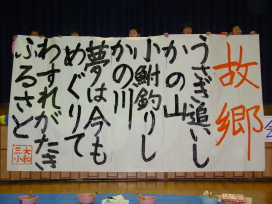 故郷
うさぎ追いし
かの山
小鮒釣りし
かの川
夢は今も
めぐりて
わすれがたき
ふるさと
大和
三小